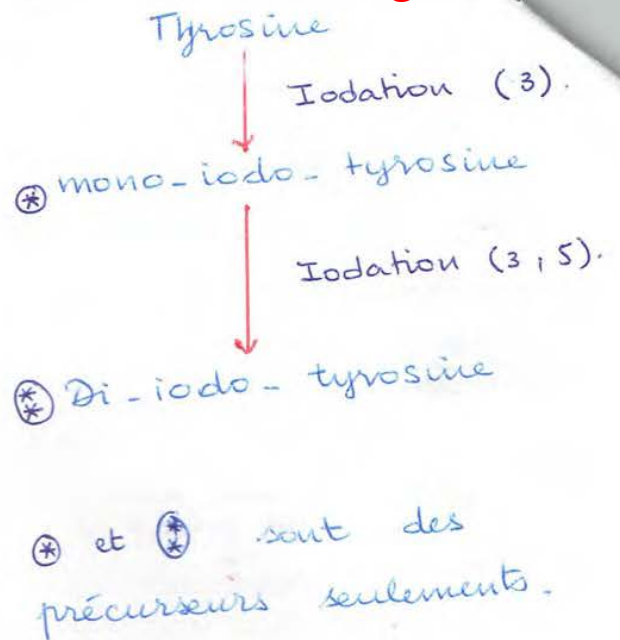 Tyrosine
Iodation (3).
* mono-iodo-tyrosine
Iodation (3,5).
** Di-iodo-tyrosine
* et ** sont des
précurseurs seulements.